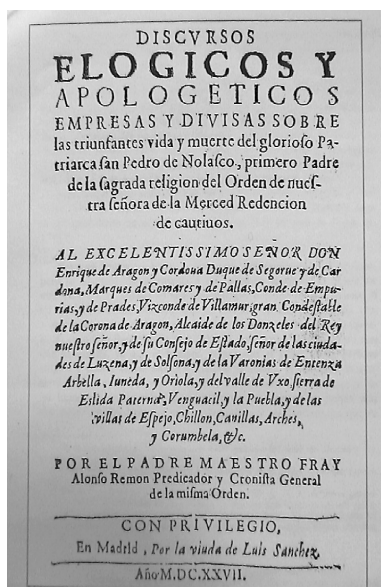 DISCVRSOS
ELOGICOS Y
APOLOGETICOS
EMPRESAS Y DIVISAS SOBRE
las triunfantes vida y muerte del glorioſo Pa-
triarca ſan Pedro de Nolaſco, primero Padre
de la ſagrada religion del Orden de nueſ-
tra ſeñora de la Merced Redencion
de cautiuos.
AL EXCELENTISSIMO SEÑOR DON
Enrique de Aragon y Cordoua Duque de Segorue y de Car
dona, Marques de Comares y de Pallas, Conde de Empu-
rias, y de Prades, Vizconde de Villamur, gran Condeſtable
de la Corona de Aragon, Alcaide de los Donzeles del Rey
nueſtro ſeñor, y de ſu Conſejo de Eſtado, ſeñor de las ciuda-
des de Luzena, y de Solſona, y de la Varonias de Entenza
Arbella, Iuneda, y Oriola, y del valle de Vxo, ſierra de
Eslida Paterna, Venguacil, y la Puebla, y de las
villas de Eſpejo, Chillon, Canillas, Arches,
y Corumbela, &c.
POR EL PADRE MAESTRO FRAY
Alonſo Remon Predicador y Cronista General
de la miſma Orden.
CON PRIVILEGIO,
En Madrid, Por la viuda de Luis Sanchez,
Año M.DC.XXVII.